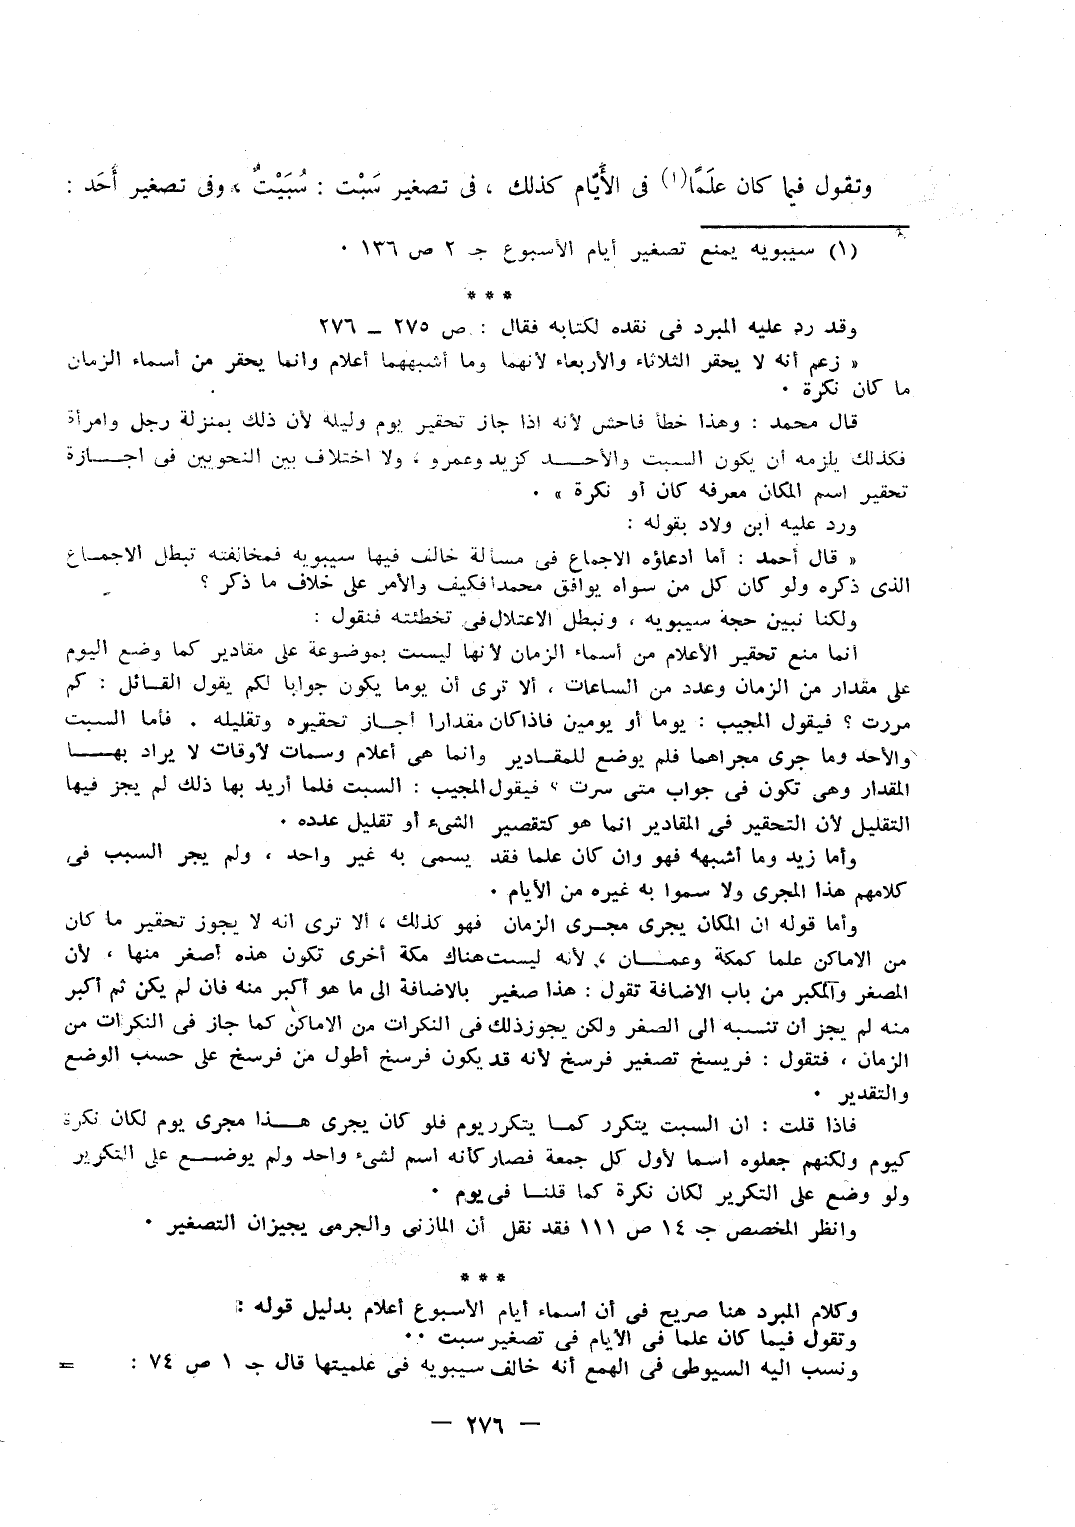 وتقول فيما كان علَمًا(١) فى الأَيّام كذلك ، فى تصغير سَبْت : سُبَيْتٌ ، وفى تصغير أَحَد :
(١) سيبويه يمنع تصغير أيام الأسبوع جـ ٢ ص ١٣٦ ٠
* * *
وقد رد عليه المبرد فى نقده لكتابه فقال : ص ٢٧٥ ــ ٢٧٦
« زعم أنه لا يحقر الثلاثاء والأربعاء لأنهما وما أشبههما أعلام وانما يحقر من أسماء الزمان
ما كان نكرة ٠
قال محمد : وهذا خطأ فاحش لأنه اذا جاز تحقير يوم وليلة لأن ذلك بمنزلة رجل وامرأة
فكذلك يلزمه أن يكون السبت والأحــد كزيد وعمرو ، ولا اختلاف بين النحويين فى اجــازة
تحقير اسم المكان معرفه كان أو نكرة » ٠
ورد عليه ابن ولاد بقوله :
« قال أحمد : أما ادعاؤه الاجماع فى مسألة خالف فيها سيبويه فمخالفته تبطل الاجمــاع
الذى ذكره ولو كان كل من سواه يوافق محمدا فكيف والأمر على خلاف ما ذكر ؟
ولكنا نبين حجة سيبويه ، ونبطل الاعتلال فى تخطئته فنقول :
انما منع تحقير الأعلام من أسماء الزمان لأنها ليست بموضوعة على مقادير كما وضع اليوم
على مقدار من الزمان وعدد من الساعات ، ألا ترى أن يوما يكون جوابا لكم يقول القــائل : كم
مررت ؟ فيقول المجيب : يوما أو يومين فاذا كان مقدارا أجــاز تحقيره وتقليله . فأما السبت
والأحد وما جرى مجراهما فلم يوضع للمقــادير وانما هى أعلام وسمات لأوقات لا يراد بهــا
المقدار وهى تكون فى جواب متى سرت ؟ فيقول المجيب : السبت فلما أريد بها ذلك لم يجز فيها
التقليل لأن التحقير فى المقادير انما هو كتقصير الشىء أو تقليل عدده ٠
وأما زيد وما أشبهه فهو وان كان علما فقد يسمى به غير واحد ، ولم يجر السبب فى
كلامهم هذا المجرى ولا سموا به غيره من الأيام ٠
وأما قوله ان المكان يجرى مجــرى الزمان فهو كذلك ، ألا ترى انه لا يجوز تحقير ما كان
من الاماكن علما كمكة وعمــان ، لأنه ليست هناك مكة أخرى تكون هذه أصغر منها ، لأن
المصغر والمكبر من باب الاضافة تقول : هذا صغير بالاضافة الى ما هو أكبر منه فان لم يكن ثم أكبر
منه لم يجز أن تنسبه الى الصغر ولكن يجوز ذلك فى النكرات من الاماكن كما جاز فى النكرات من
الزمان ، فتقول : فريسخ تصغير فرسخ لأنه قد يكون فرسخ أطول من فرسخ على حسب الوضع
والتقدير ٠
فاذا قلت : ان السبت يتكرر كمــا يتكرر يوم فلو كان يجرى هــذا مجرى يوم لكان نكرة
كيوم ولكنهم جعلوه اسما لأول كل جمعة فصار كأنه اسم لشىء واحد ولم يوضــع على التكرير
ولو وضع على التكرير لكان نكرة كما قلنــا فى يوم ٠
وانظر المخصص جـ ١٤ ص ١١١ فقد نقل أن المازنى والجرمى يجيزان التصغير ٠
* * *
وكلام المبرد هنا صريح فى أن أسماء أيام الأسبوع أعلام بدليل قوله :
وتقول فيما كان علما فى الأيام فى تصغير سبت ٠٠
ونسب اليه السيوطى فى الهمع أنه خالف سيبويه فى علميتها قال جـ ١ ص ٧٤ : =
— ٢٧٦ —